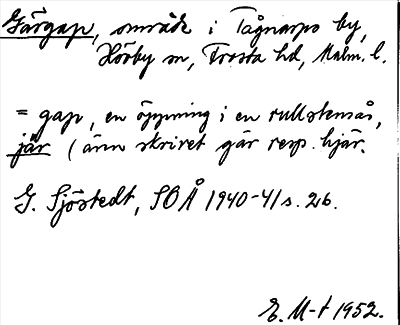 Gärgap, område i Tågnarps by,
Hörby sn, Frosta hd, Malm. l.
= gap, en öppning i en rullstensås,
jär (änn skrivet gär resp. hjär.
G. Sjöstedt, SOÅ 1940-41 s. 26.
E. M-t 1952.